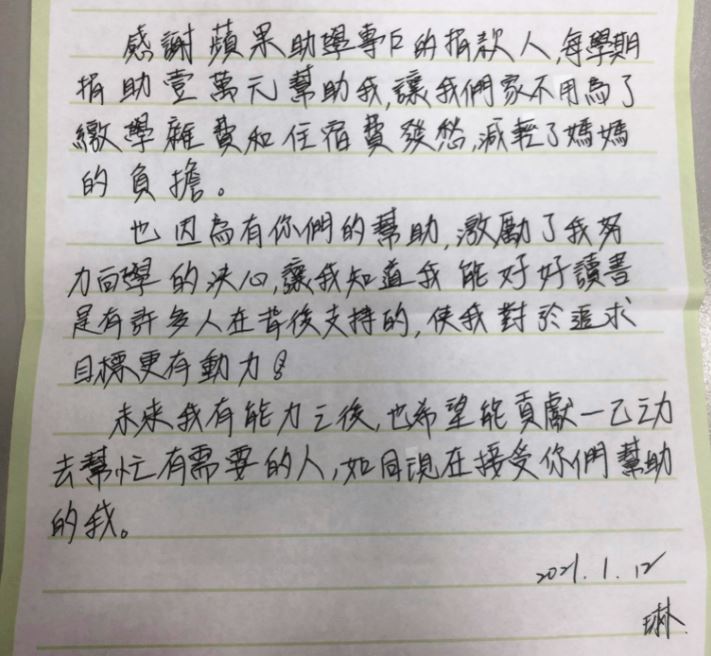 感謝蘋果助學專戶的捐款人,每學期
捐助壹萬元幫助我,讓我們家不用為了
繳學雜費和住宿費發愁,減輕了媽媽
的負擔。
也因為有你們的幫助,激勵了我努
力向學的決心,讓我知道我能好好讀書
是有許多人在背後支持的,使我對於追求
目標更有動力!
未來我有能力之後,也希望能貢獻一己之力
去幫忙有需要的人,如同現在接受你們幫助
的我。
2021.1.12
琳